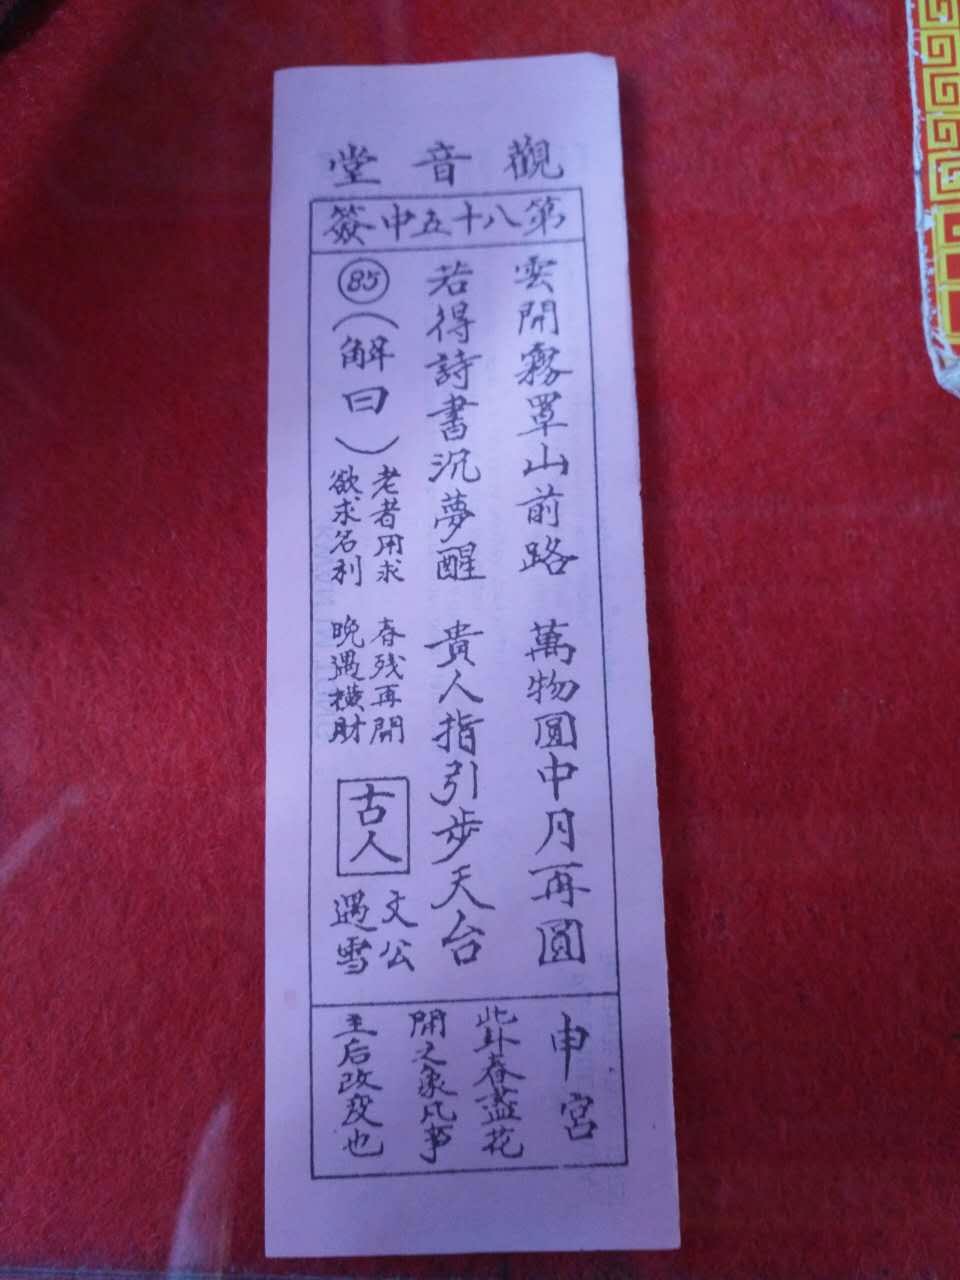 觀音堂
第八十五中簽
雲開霧罩山前路
萬物圓中月再圓
若得詩書沉夢醒
貴人指引步天台
85
(解曰)
老者用求
春残再開
欲求名利
晚遇横財
古人
文公
遇雪
申宮
此卦春盡花
開之象凡事
主后改变也